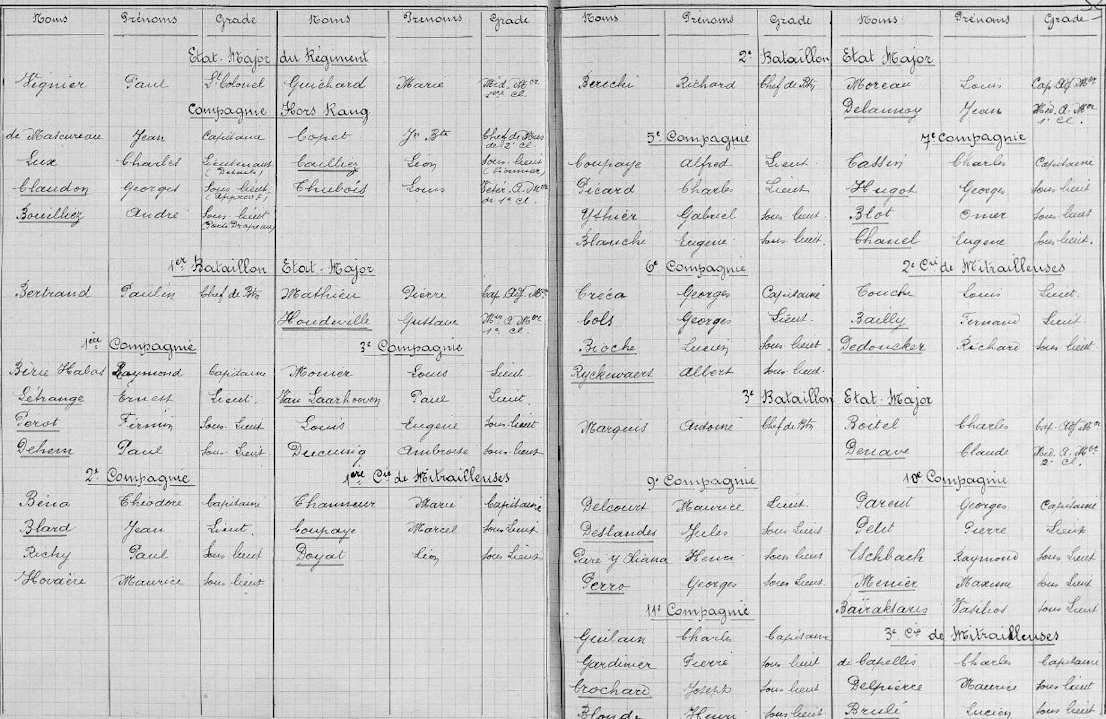 Noms Prénoms Grade Noms Prénoms Grade
Etat-Major du Régiment
Vignier Paul Lt Colonel Guichard Marie Méd. Mor 1ère Cl.
Compagnie Hors Rang
de Mascureau Jean Capitaine Copet Jn Bte Chef de Mus de 2e Cl
Lux Charles Lieutenant (Détails) Cailliez Léon Sous-lieut (Pionnier)
Claudon Georges Sous-lieut. (Approvt) Thubois Louis Vétér. A. Mor de 1e Cl.
Bouilliez André Sous-lieut Porte Drapeau
1er Bataillon Etat-Major
Bertrand Paulin Chef de Bon Mathieu Pierre Cap. Adj. Mor
Houdeville Gustave Méd. A. Mor 1e Cl.
1ère Compagnie 3e Compagnie
Raymond Capitaine Monier Louis Lieut
Létrange Ernest Lieut. Van Laarhoven Paul Lieut.
Perot Firmin Sous-Lieut Louis Eugène Sous-lieut
Dehem Paul Sous-Lieut Ducuing Ambroise Sous-lieut
2e Compagnie 1ère Cie de Mitrailleuses
Béna Théodore Capitaine Chanmeur Marie Capitaine
Blard Jean Lieut. Coupaye Marcel Sous Lieut
Richy Paul Sous lieut Doyat Léon Sous Lieut
Hovaëre Maurice Sous lieut
Noms Prénoms Grade Noms Prénoms Grade
2e Bataillon Etat Major
Berechi Richard Chef de Bon Moreau Louis Cap. Adj. Mor
Delaunoy Jean Méd. A. Mor 1e Cl.
5e Compagnie 7e Compagnie
Coupaye Alfred Lieut. Cassin Charles Capitaine
Picard Charles Lieut Hugot Georges Sous lieut
Ythier Gabriel Sous lieut. Blot Omer Sous lieut
Blanche Eugène Sous lieut. Chanel Eugène Sous lieut.
6e Compagnie 2e Cie de Mitrailleuses
Créca Georges Capitaine Touche Louis Lieut.
Cols Georges Lieut. Bailly Fernand Lieut
Bioche Lucien Sous lieut Dedoncker Richard Sous lieut
Ryckwaert Albert Sous lieut.
3e Bataillon Etat-Major
Marquis Antoine Chef de Bon Boitel Charles Cap. Adj. Mor
Denave Claude Méd. A. Mor 2e Cl.
9e Compagnie 10e Compagnie
Delcourt Maurice Lieut. Parent Georges Capitaine
Deslandes Jules Sous Lieut Petit Pierre Lieut
Henri Sous lieut Raymond Sous Lieut
Perro Georges Sous Lieut. Menier Maxime Sous Lieut
11e Compagnie Baïraktaris Vasilios Sous Lieut
Guilain Charles Capitaine 3e Cie de Mitrailleuses
Gardinier Pierre Sous lieut de Capellis Charles Capitaine
Crochard Joseph Sous lieut Delpierre Maurice Sous lieut
Blonde Henri Sous lieut. Brulé Lucien Sous lieut.